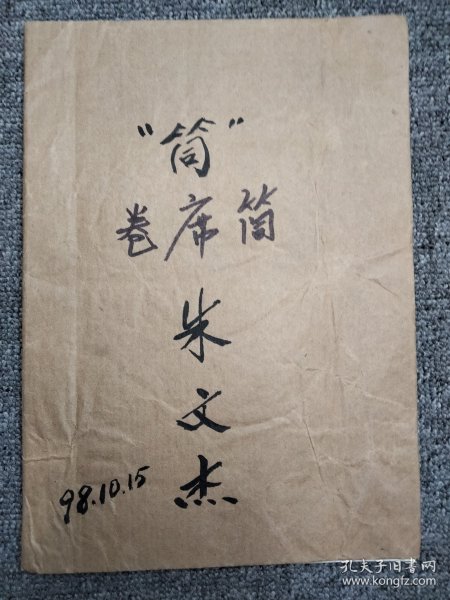 “筒”
卷席筒
朱文杰
98.10.15
孔夫子旧书网
www.kongfz.com